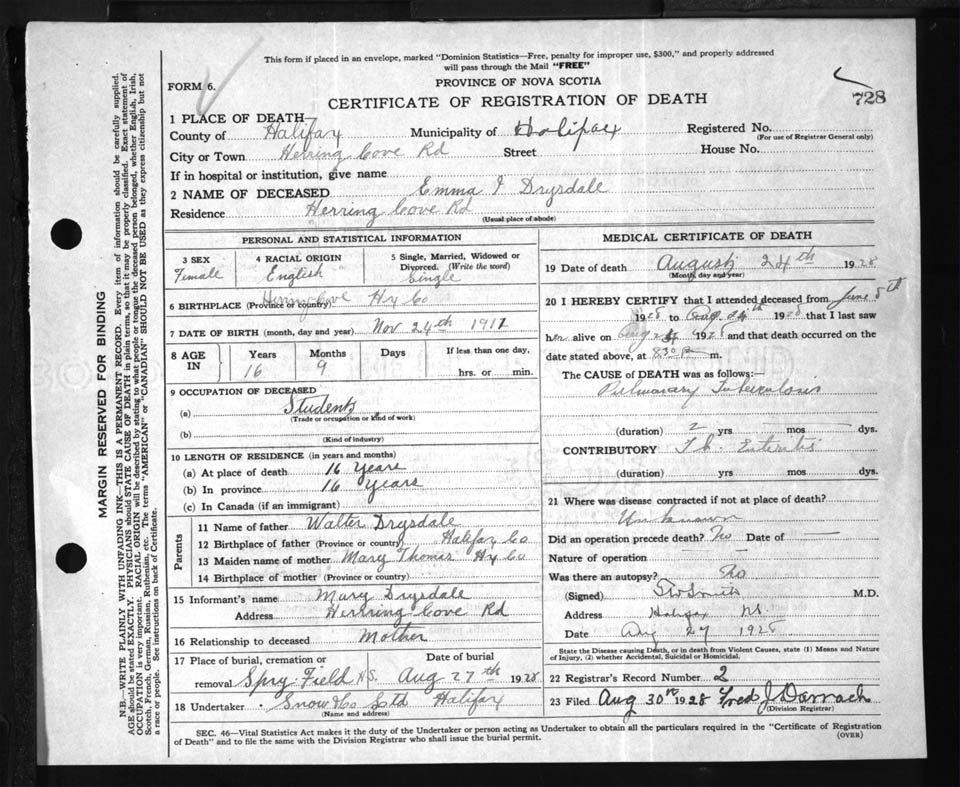 This form if placed in an envelope, marked "Dominion Statistics—Free, penalty for improper use, $300," and properly addressed
will pass through the Mail "FREE"
FORM 6.
PROVINCE OF NOVA SCOTIA
CERTIFICATE OF REGISTRATION OF DEATH
728
1 PLACE OF DEATH
County of Halifax Municipality of Halifax Registered No.
(For use of Registrar General only)
City or Town Herring Cove Rd Street House No.
If in hospital or institution, give name
2 NAME OF DECEASED Emma I Drysdale
Residence Herring Cove Rd
(Usual place of abode)
PERSONAL AND STATISTICAL INFORMATION
3 SEX Female
4 RACIAL ORIGIN English
5 Single, Married, Widowed or Divorced. (Write the word) Single
6 BIRTHPLACE (Province or country) Cove Hx Co
7 DATE OF BIRTH (month, day and year) Nov 24th 1911
8 AGE IN
Years Months Days If less than one day,
16 9 hrs. or min.
9 OCCUPATION OF DECEASED
(a) Student
(Trade or occupation or kind of work)
(b)
(Kind of industry)
10 LENGTH OF RESIDENCE (in years and months)
(a) At place of death 16 Years
(b) In province 16 Years
(c) In Canada (if an immigrant)
Parents
11 Name of father Walter Drysdale
12 Birthplace of father (Province or country) Halifax Co
13 Maiden name of mother Mary Thomas Hx Co
14 Birthplace of mother (Province or country)
15 Informant's name Mary Drysdale
Address Herring Cove Rd
16 Relationship to deceased Mother
17 Place of burial, cremation or removal Spry Field N.S.
Date of burial Aug 27th 1928
18 Undertaker Snow & Co Ltd Halifax
(Name and address)
MEDICAL CERTIFICATE OF DEATH
19 Date of death August 24th 1928
(Month, day and year)
20 I HEREBY CERTIFY that I attended deceased from June 5th
1928 to Aug 24th 1928 that I last saw
her alive on Aug 24 1928 and that death occurred on the
date stated above, at 8.30 P m.
The CAUSE of DEATH was as follows:
Pulmonary Tuberculosis
(duration) 2 yrs mos dys.
CONTRIBUTORY T.b. Enteritis
(duration) yrs mos dys.
21 Where was disease contracted if not at place of death?
Unknown
Did an operation precede death? No Date of —
Nature of operation —
Was there an autopsy? No
(Signed) Smith M.D.
Address Halifax NS.
Date Aug 27 1928
State the Disease causing Death, or in death from Violent Causes, state (1) Means and Nature
of Injury, (2) whether Accidental, Suicidal or Homicidal.
22 Registrar's Record Number 2
23 Filed Aug 30 1928 Fred J Darrach
(Division Registrar)
SEC. 46—Vital Statistics Act makes it the duty of the Undertaker or person acting as Undertaker to obtain all the particulars required in the "Certificate of Registration
of Death" and to file the same with the Division Registrar who shall issue the burial permit.
(OVER)
MARGIN RESERVED FOR BINDING
N.B.—WRITE PLAINLY WITH UNFADING INK—THIS IS A PERMANENT RECORD. Every item of information should be carefully supplied.
AGE should be stated EXACTLY. PHYSICIANS should STATE CAUSE OF DEATH in plain terms, so that it may be properly classified. Exact statement of
OCCUPATION is very important. RACIAL ORIGIN will be described by stating to what people or tongue the deceased person belonged, whether English, Irish,
Scotch, French, German, Russian, Ruthenian, etc. The terms "AMERICAN" or "CANADIAN" SHOULD NOT BE USED as they express citizenship but not
a race or people. See instructions on back of Certificate.